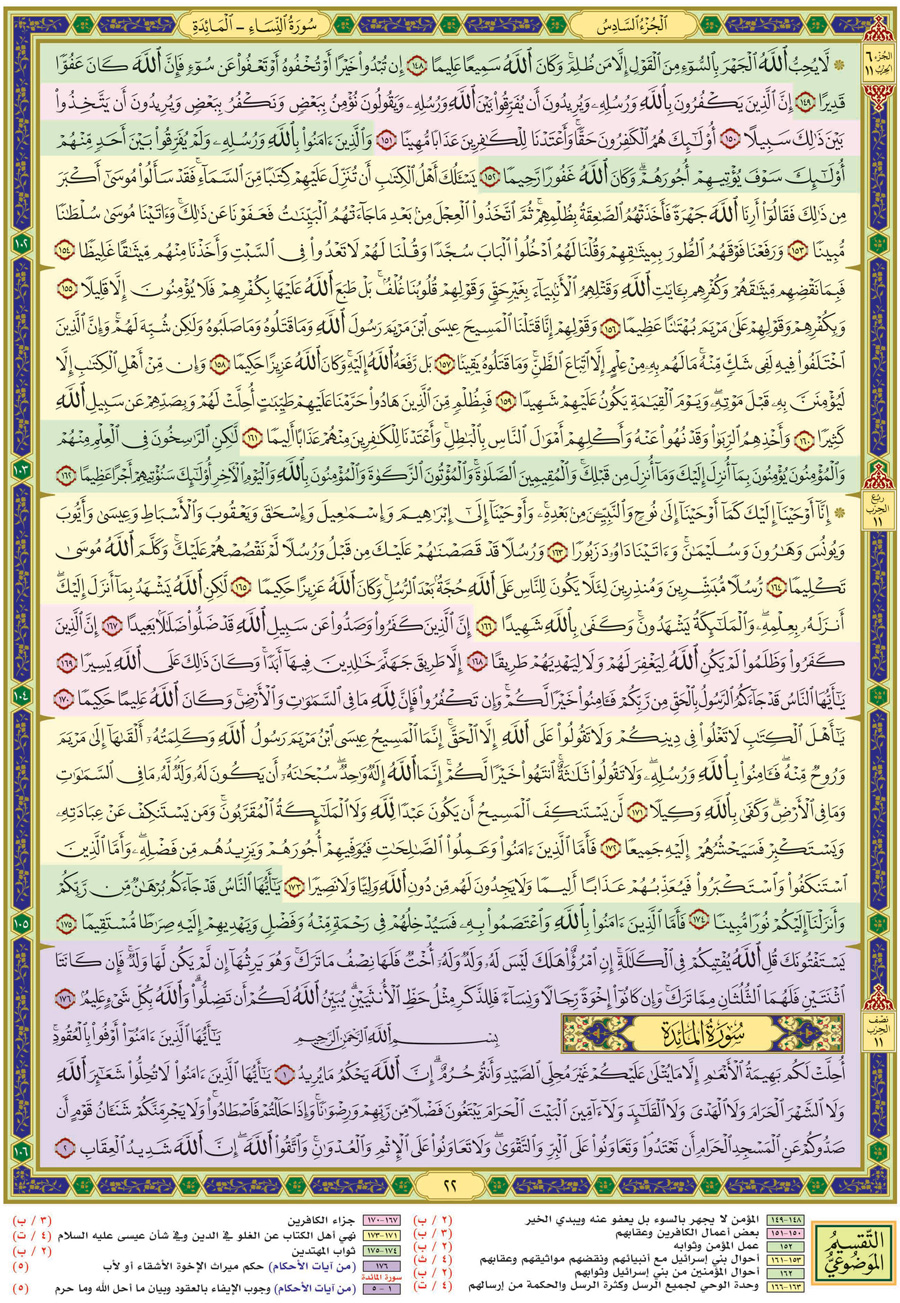 الجزء السادس
سورة النساء - المائدة
الجزء ٦
الحزب ١١
۞ لَّا يُحِبُّ ٱللَّهُ ٱلْجَهْرَ بِٱلسُّوٓءِ مِنَ ٱلْقَوْلِ إِلَّا مَن ظُلِمَ ۚ وَكَانَ ٱللَّهُ سَمِيعًا عَلِيمًا ١٤٨ إِن تُبْدُوا۟ خَيْرًا أَوْ تُخْفُوهُ أَوْ تَعْفُوا۟ عَن سُوٓءٍ فَإِنَّ ٱللَّهَ كَانَ عَفُوًّا
قَدِيرًا ١٤٩ إِنَّ ٱلَّذِينَ يَكْفُرُونَ بِٱللَّهِ وَرُسُلِهِۦ وَيُرِيدُونَ أَن يُفَرِّقُوا۟ بَيْنَ ٱللَّهِ وَرُسُلِهِۦ وَيَقُولُونَ نُؤْمِنُ بِبَعْضٍ وَنَكْفُرُ بِبَعْضٍ وَيُرِيدُونَ أَن يَتَّخِذُوا۟
بَيْنَ ذَٰلِكَ سَبِيلًا ١٥٠ أُو۟لَٰٓئِكَ هُمُ ٱلْكَٰفِرُونَ حَقًّا ۚ وَأَعْتَدْنَا لِلْكَٰفِرِينَ عَذَابًا مُّهِينًا ١٥١ وَٱلَّذِينَ ءَامَنُوا۟ بِٱللَّهِ وَرُسُلِهِۦ وَلَمْ يُفَرِّقُوا۟ بَيْنَ أَحَدٍ مِّنْهُمْ
أُو۟لَٰٓئِكَ سَوْفَ يُؤْتِيهِمْ أُجُورَهُمْ ۗ وَكَانَ ٱللَّهُ غَفُورًا رَّحِيمًا ١٥٢ يَسْـَٔلُكَ أَهْلُ ٱلْكِتَٰبِ أَن تُنَزِّلَ عَلَيْهِمْ كِتَٰبًا مِّنَ ٱلسَّمَآءِ ۚ فَقَدْ سَأَلُوا۟ مُوسَىٰٓ أَكْبَرَ
مِن ذَٰلِكَ فَقَالُوٓا۟ أَرِنَا ٱللَّهَ جَهْرَةً فَأَخَذَتْهُمُ ٱلصَّٰعِقَةُ بِظُلْمِهِمْ ۚ ثُمَّ ٱتَّخَذُوا۟ ٱلْعِجْلَ مِنۢ بَعْدِ مَا جَآءَتْهُمُ ٱلْبَيِّنَٰتُ فَعَفَوْنَا عَن ذَٰلِكَ ۚ وَءَاتَيْنَا مُوسَىٰ سُلْطَٰنًا
١٠٢
مُّبِينًا ١٥٣ وَرَفَعْنَا فَوْقَهُمُ ٱلطُّورَ بِمِيثَٰقِهِمْ وَقُلْنَا لَهُمُ ٱدْخُلُوا۟ ٱلْبَابَ سُجَّدًا وَقُلْنَا لَهُمْ لَا تَعْدُوا۟ فِى ٱلسَّبْتِ وَأَخَذْنَا مِنْهُم مِّيثَٰقًا غَلِيظًا ١٥٤
فَبِمَا نَقْضِهِم مِّيثَٰقَهُمْ وَكُفْرِهِم بِـَٔايَٰتِ ٱللَّهِ وَقَتْلِهِمُ ٱلْأَنۢبِيَآءَ بِغَيْرِ حَقٍّ وَقَوْلِهِمْ قُلُوبُنَا غُلْفٌۢ ۚ بَلْ طَبَعَ ٱللَّهُ عَلَيْهَا بِكُفْرِهِمْ فَلَا يُؤْمِنُونَ إِلَّا قَلِيلًا ١٥٥
وَبِكُفْرِهِمْ وَقَوْلِهِمْ عَلَىٰ مَرْيَمَ بُهْتَٰنًا عَظِيمًا ١٥٦ وَقَوْلِهِمْ إِنَّا قَتَلْنَا ٱلْمَسِيحَ عِيسَى ٱبْنَ مَرْيَمَ رَسُولَ ٱللَّهِ وَمَا قَتَلُوهُ وَمَا صَلَبُوهُ وَلَٰكِن شُبِّهَ لَهُمْ ۚ وَإِنَّ ٱلَّذِينَ
ٱخْتَلَفُوا۟ فِيهِ لَفِى شَكٍّ مِّنْهُ ۚ مَا لَهُم بِهِۦ مِنْ عِلْمٍ إِلَّا ٱتِّبَاعَ ٱلظَّنِّ ۚ وَمَا قَتَلُوهُ يَقِينًۢا ١٥٧ بَل رَّفَعَهُ ٱللَّهُ إِلَيْهِ ۚ وَكَانَ ٱللَّهُ عَزِيزًا حَكِيمًا ١٥٨ وَإِن مِّنْ أَهْلِ ٱلْكِتَٰبِ إِلَّا
لَيُؤْمِنَنَّ بِهِۦ قَبْلَ مَوْتِهِۦ ۖ وَيَوْمَ ٱلْقِيَٰمَةِ يَكُونُ عَلَيْهِمْ شَهِيدًا ١٥٩ فَبِظُلْمٍ مِّنَ ٱلَّذِينَ هَادُوا۟ حَرَّمْنَا عَلَيْهِمْ طَيِّبَٰتٍ أُحِلَّتْ لَهُمْ وَبِصَدِّهِمْ عَن سَبِيلِ ٱللَّهِ
كَثِيرًا ١٦٠ وَأَخْذِهِمُ ٱلرِّبَوٰا۟ وَقَدْ نُهُوا۟ عَنْهُ وَأَكْلِهِمْ أَمْوَٰلَ ٱلنَّاسِ بِٱلْبَٰطِلِ ۚ وَأَعْتَدْنَا لِلْكَٰفِرِينَ مِنْهُمْ عَذَابًا أَلِيمًا ١٦١ لَّٰكِنِ ٱلرَّٰسِخُونَ فِى ٱلْعِلْمِ مِنْهُمْ
١٠٣
وَٱلْمُؤْمِنُونَ يُؤْمِنُونَ بِمَآ أُنزِلَ إِلَيْكَ وَمَآ أُنزِلَ مِن قَبْلِكَ ۚ وَٱلْمُقِيمِينَ ٱلصَّلَوٰةَ ۚ وَٱلْمُؤْتُونَ ٱلزَّكَوٰةَ وَٱلْمُؤْمِنُونَ بِٱللَّهِ وَٱلْيَوْمِ ٱلْءَاخِرِ أُو۟لَٰٓئِكَ سَنُؤْتِيهِمْ أَجْرًا عَظِيمًا ١٦٢
ربع
الحزب
١١
۞ إِنَّآ أَوْحَيْنَآ إِلَيْكَ كَمَآ أَوْحَيْنَآ إِلَىٰ نُوحٍ وَٱلنَّبِيِّـۧنَ مِنۢ بَعْدِهِۦ ۚ وَأَوْحَيْنَآ إِلَىٰٓ إِبْرَٰهِيمَ وَإِسْمَٰعِيلَ وَإِسْحَٰقَ وَيَعْقُوبَ وَٱلْأَسْبَاطِ وَعِيسَىٰ وَأَيُّوبَ
وَيُونُسَ وَهَٰرُونَ وَسُلَيْمَٰنَ ۚ وَءَاتَيْنَا دَاوُۥدَ زَبُورًا ١٦٣ وَرُسُلًا قَدْ قَصَصْنَٰهُمْ عَلَيْكَ مِن قَبْلُ وَرُسُلًا لَّمْ نَقْصُصْهُمْ عَلَيْكَ ۚ وَكَلَّمَ ٱللَّهُ مُوسَىٰ
تَكْلِيمًا ١٦٤ رُّسُلًا مُّبَشِّرِينَ وَمُنذِرِينَ لِئَلَّا يَكُونَ لِلنَّاسِ عَلَى ٱللَّهِ حُجَّةٌۢ بَعْدَ ٱلرُّسُلِ ۚ وَكَانَ ٱللَّهُ عَزِيزًا حَكِيمًا ١٦٥ لَّٰكِنِ ٱللَّهُ يَشْهَدُ بِمَآ أَنزَلَ إِلَيْكَ ۖ
أَنزَلَهُۥ بِعِلْمِهِۦ ۖ وَٱلْمَلَٰٓئِكَةُ يَشْهَدُونَ ۚ وَكَفَىٰ بِٱللَّهِ شَهِيدًا ١٦٦ إِنَّ ٱلَّذِينَ كَفَرُوا۟ وَصَدُّوا۟ عَن سَبِيلِ ٱللَّهِ قَدْ ضَلُّوا۟ ضَلَٰلًۢا بَعِيدًا ١٦٧ إِنَّ ٱلَّذِينَ
كَفَرُوا۟ وَظَلَمُوا۟ لَمْ يَكُنِ ٱللَّهُ لِيَغْفِرَ لَهُمْ وَلَا لِيَهْدِيَهُمْ طَرِيقًا ١٦٨ إِلَّا طَرِيقَ جَهَنَّمَ خَٰلِدِينَ فِيهَآ أَبَدًا ۚ وَكَانَ ذَٰلِكَ عَلَى ٱللَّهِ يَسِيرًا ١٦٩
١٠٤
يَٰٓأَيُّهَا ٱلنَّاسُ قَدْ جَآءَكُمُ ٱلرَّسُولُ بِٱلْحَقِّ مِن رَّبِّكُمْ فَـَٔامِنُوا۟ خَيْرًا لَّكُمْ ۚ وَإِن تَكْفُرُوا۟ فَإِنَّ لِلَّهِ مَا فِى ٱلسَّمَٰوَٰتِ وَٱلْأَرْضِ ۚ وَكَانَ ٱللَّهُ عَلِيمًا حَكِيمًا ١٧٠
يَٰٓأَهْلَ ٱلْكِتَٰبِ لَا تَغْلُوا۟ فِى دِينِكُمْ وَلَا تَقُولُوا۟ عَلَى ٱللَّهِ إِلَّا ٱلْحَقَّ ۚ إِنَّمَا ٱلْمَسِيحُ عِيسَى ٱبْنُ مَرْيَمَ رَسُولُ ٱللَّهِ وَكَلِمَتُهُۥٓ أَلْقَىٰهَآ إِلَىٰ مَرْيَمَ
وَرُوحٌ مِّنْهُ ۖ فَـَٔامِنُوا۟ بِٱللَّهِ وَرُسُلِهِۦ ۖ وَلَا تَقُولُوا۟ ثَلَٰثَةٌ ۚ ٱنتَهُوا۟ خَيْرًا لَّكُمْ ۚ إِنَّمَا ٱللَّهُ إِلَٰهٌ وَٰحِدٌ ۖ سُبْحَٰنَهُۥٓ أَن يَكُونَ لَهُۥ وَلَدٌ ۘ لَّهُۥ مَا فِى ٱلسَّمَٰوَٰتِ
وَمَا فِى ٱلْأَرْضِ ۗ وَكَفَىٰ بِٱللَّهِ وَكِيلًا ١٧١ لَّن يَسْتَنكِفَ ٱلْمَسِيحُ أَن يَكُونَ عَبْدًا لِّلَّهِ وَلَا ٱلْمَلَٰٓئِكَةُ ٱلْمُقَرَّبُونَ ۚ وَمَن يَسْتَنكِفْ عَنْ عِبَادَتِهِۦ
وَيَسْتَكْبِرْ فَسَيَحْشُرُهُمْ إِلَيْهِ جَمِيعًا ١٧٢ فَأَمَّا ٱلَّذِينَ ءَامَنُوا۟ وَعَمِلُوا۟ ٱلصَّٰلِحَٰتِ فَيُوَفِّيهِمْ أُجُورَهُمْ وَيَزِيدُهُم مِّن فَضْلِهِۦ ۖ وَأَمَّا ٱلَّذِينَ
ٱسْتَنكَفُوا۟ وَٱسْتَكْبَرُوا۟ فَيُعَذِّبُهُمْ عَذَابًا أَلِيمًا وَلَا يَجِدُونَ لَهُم مِّن دُونِ ٱللَّهِ وَلِيًّا وَلَا نَصِيرًا ١٧٣ يَٰٓأَيُّهَا ٱلنَّاسُ قَدْ جَآءَكُم بُرْهَٰنٌ مِّن رَّبِّكُمْ
١٠٥
وَأَنزَلْنَآ إِلَيْكُمْ نُورًا مُّبِينًا ١٧٤ فَأَمَّا ٱلَّذِينَ ءَامَنُوا۟ بِٱللَّهِ وَٱعْتَصَمُوا۟ بِهِۦ فَسَيُدْخِلُهُمْ فِى رَحْمَةٍ مِّنْهُ وَفَضْلٍ وَيَهْدِيهِمْ إِلَيْهِ صِرَٰطًا مُّسْتَقِيمًا ١٧٥
يَسْتَفْتُونَكَ قُلِ ٱللَّهُ يُفْتِيكُمْ فِى ٱلْكَلَٰلَةِ ۚ إِنِ ٱمْرُؤٌا۟ هَلَكَ لَيْسَ لَهُۥ وَلَدٌ وَلَهُۥٓ أُخْتٌ فَلَهَا نِصْفُ مَا تَرَكَ ۚ وَهُوَ يَرِثُهَآ إِن لَّمْ يَكُن لَّهَا وَلَدٌ ۚ فَإِن كَانَتَا
ٱثْنَتَيْنِ فَلَهُمَا ٱلثُّلُثَانِ مِمَّا تَرَكَ ۚ وَإِن كَانُوٓا۟ إِخْوَةً رِّجَالًا وَنِسَآءً فَلِلذَّكَرِ مِثْلُ حَظِّ ٱلْأُنثَيَيْنِ ۗ يُبَيِّنُ ٱللَّهُ لَكُمْ أَن تَضِلُّوا۟ ۗ وَٱللَّهُ بِكُلِّ شَىْءٍ عَلِيمٌۢ ١٧٦
نصف
الحزب
١١
سورة المائدة بِسْمِ ٱللَّهِ ٱلرَّحْمَٰنِ ٱلرَّحِيمِ يَٰٓأَيُّهَا ٱلَّذِينَ ءَامَنُوٓا۟ أَوْفُوا۟ بِٱلْعُقُودِ ۚ
أُحِلَّتْ لَكُم بَهِيمَةُ ٱلْأَنْعَٰمِ إِلَّا مَا يُتْلَىٰ عَلَيْكُمْ غَيْرَ مُحِلِّى ٱلصَّيْدِ وَأَنتُمْ حُرُمٌ ۗ إِنَّ ٱللَّهَ يَحْكُمُ مَا يُرِيدُ ١ يَٰٓأَيُّهَا ٱلَّذِينَ ءَامَنُوا۟ لَا تُحِلُّوا۟ شَعَٰٓئِرَ ٱللَّهِ
وَلَا ٱلشَّهْرَ ٱلْحَرَامَ وَلَا ٱلْهَدْىَ وَلَا ٱلْقَلَٰٓئِدَ وَلَآ ءَآمِّينَ ٱلْبَيْتَ ٱلْحَرَامَ يَبْتَغُونَ فَضْلًا مِّن رَّبِّهِمْ وَرِضْوَٰنًا ۚ وَإِذَا حَلَلْتُمْ فَٱصْطَادُوا۟ ۚ وَلَا يَجْرِمَنَّكُمْ شَنَـَٔانُ قَوْمٍ أَن
١٠٦
صَدُّوكُمْ عَنِ ٱلْمَسْجِدِ ٱلْحَرَامِ أَن تَعْتَدُوا۟ ۘ وَتَعَاوَنُوا۟ عَلَى ٱلْبِرِّ وَٱلتَّقْوَىٰ ۖ وَلَا تَعَاوَنُوا۟ عَلَى ٱلْإِثْمِ وَٱلْعُدْوَٰنِ ۚ وَٱتَّقُوا۟ ٱللَّهَ ۖ إِنَّ ٱللَّهَ شَدِيدُ ٱلْعِقَابِ ٢
٢٢
التقسيم
الموضوعي
١٤٨-١٤٩ المؤمن لا يجهر بالسوء بل يعفو عنه ويبدي الخير (٢ / ب)
١٥٠-١٥١ بعض أعمال الكافرين وعقابهم (٣ / ب)
١٥٢ عمل المؤمن وثوابه (٢ / ب)
١٥٣-١٦١ أحوال بني إسرائيل مع أنبيائهم ونقضهم مواثيقهم وعقابهم (٤ / ث)
١٦٢ أحوال المؤمنين من بني إسرائيل وثوابهم (٢ / ب)
١٦٣-١٦٦ وحدة الوحي لجميع الرسل وكثرة الرسل والحكمة من إرسالهم (٤ / ت)
١٦٧-١٧٠ جزاء الكافرين (٣ / ب)
١٧١-١٧٣ نهي أهل الكتاب عن الغلو في الدين وفي شأن عيسى عليه السلام (٤ / ت)
١٧٤-١٧٥ ثواب المهتدين (٢ / ب)
١٧٦ (من آيات الأحكام) حكم ميراث الإخوة الأشقاء أو لأب (٥)
سورة المائدة
١ - ٥ (من آيات الأحكام) وجوب الإيفاء بالعقود وبيان ما أحل الله وما حرم (٥)